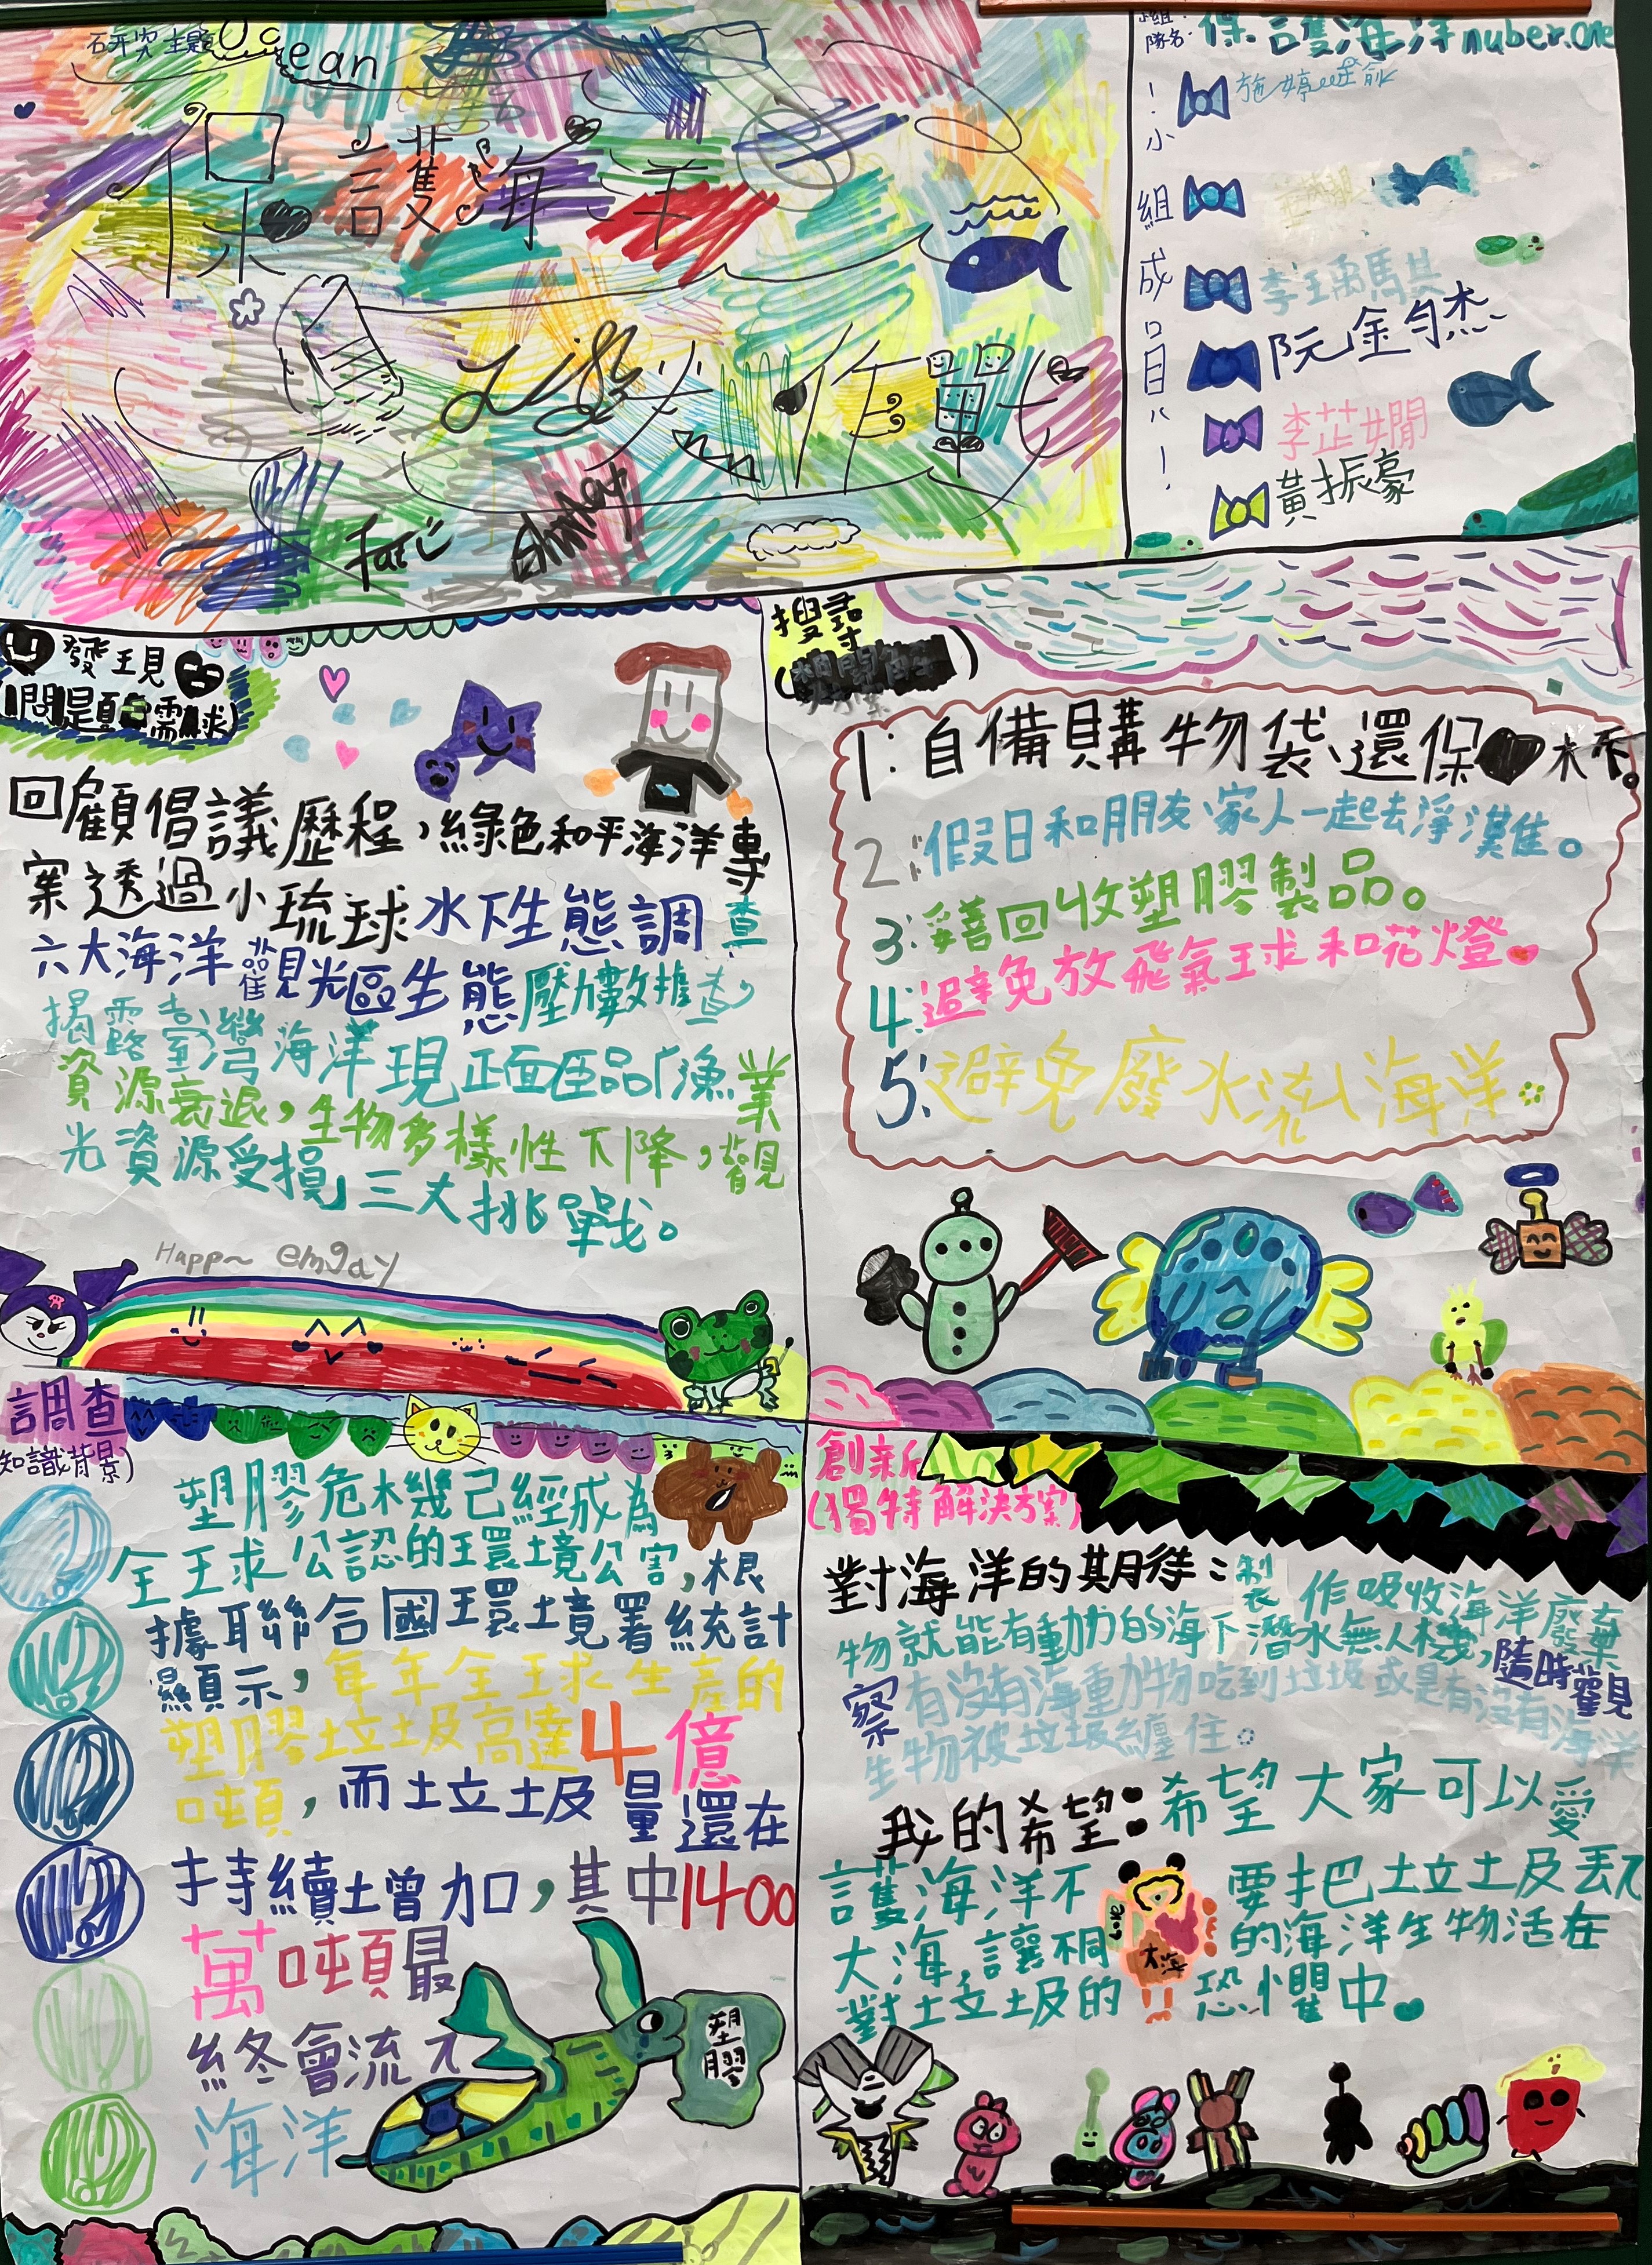 研究主題Ocean
保護海洋
小組:
隊名:保護海洋nuber.one
!小組成員!
李芷嫺
黃振豪
發現
(問題與需求)
回顧倡議歷程,綠色和平海洋專
案透過小琉球水下生態調查
六大海洋觀光區生態壓力數據
揭露臺灣海洋現正面臨「漁業
資源衰退,生物多樣性下降,觀
光資源受損」三大挑戰。
Happ~ emgay
搜尋
1:自備購物袋、環保杯。
2:假日和朋友、家人一起去淨灘。
3:回收塑膠製品。
4:避免放飛氣球和花燈
5:避免廢水流入海洋
調查
(知識背景)
塑膠危機已經成為
全球公認的環境公害,根
據聯合國環境署統計
顯示,每年全球生產的
塑膠垃圾高達4億
噸,而垃圾量還在
持續增加,其中1400
萬噸最
終會流入
海洋
塑膠
創新
(獨特解決方案)
對海洋的期待:製作吸收海洋廢棄
物就能有動力的海下潛水無人機,隨時觀
察有沒有海動物吃到垃圾或是有沒有海洋
生物被垃圾纏住。
我的希望:希望大家可以愛
護海洋不要把垃圾丟入
大海,讓的海洋生物活在
對垃圾的恐懼中
Love